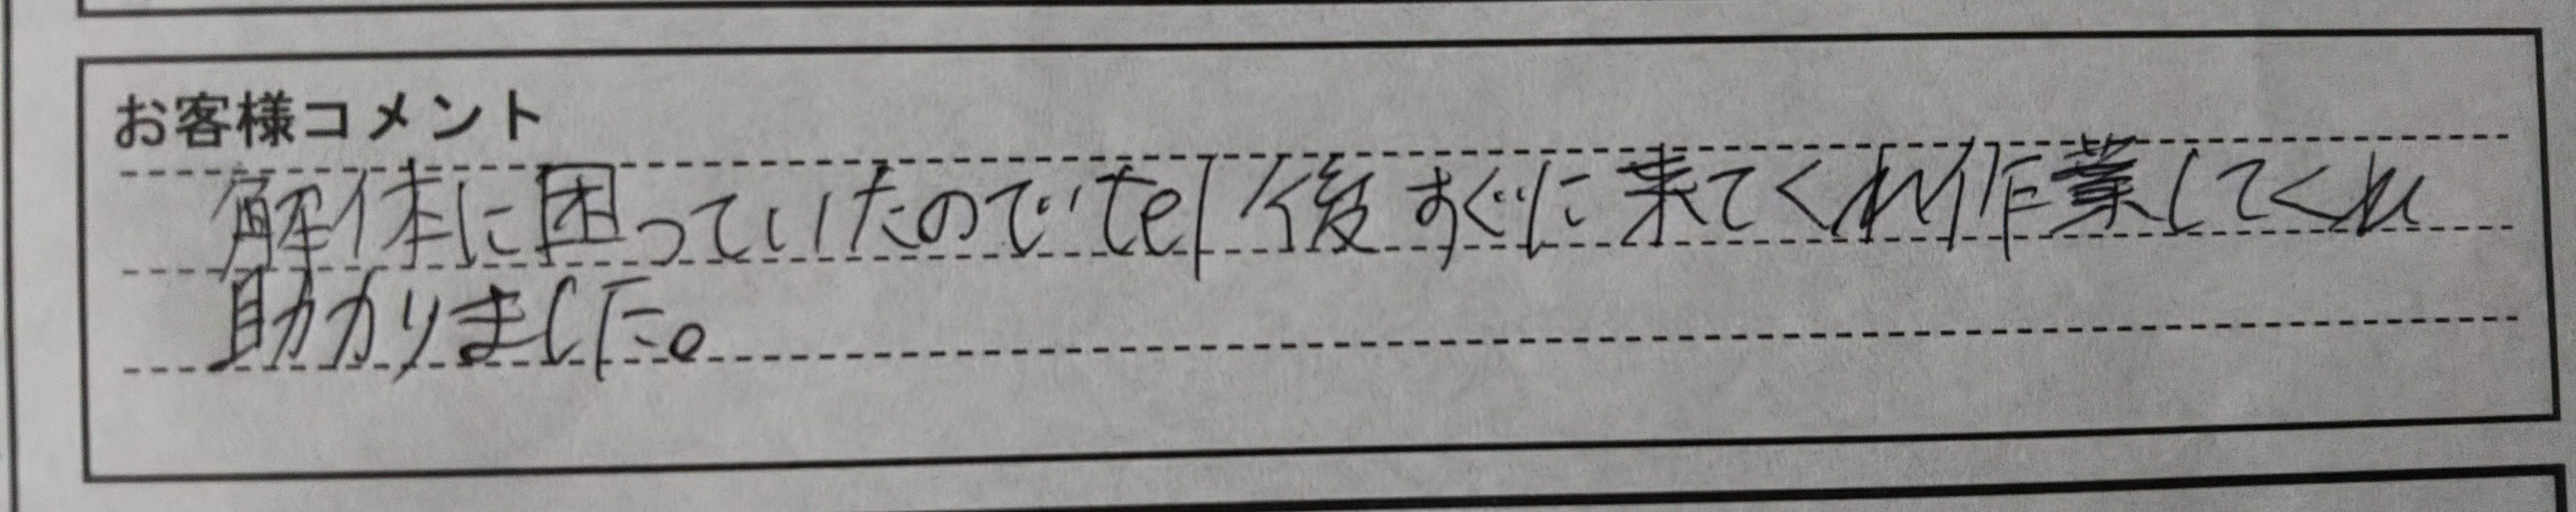 お客様コメント
解体に困っていたのでtel後すぐに来てくれ作業してくれ
助かりました。